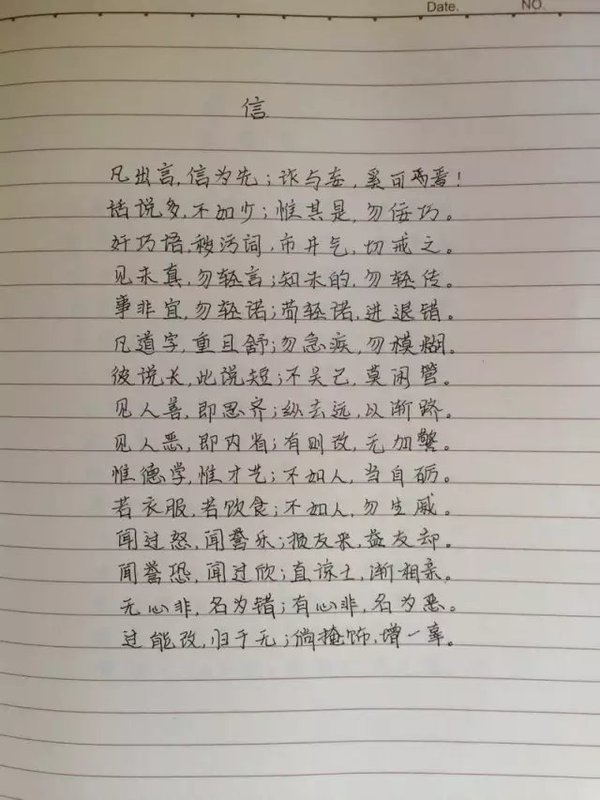 Date. NO.
信
凡出言,信为先;诈与妄,奚可焉!
话说多,不如少;惟其是,勿佞巧。
奸巧语,秽污词,市井气,切戒之。
见未真,勿轻言;知未的,勿轻传。
事非宜,勿轻诺;苟轻诺,进退错。
凡道字,重且舒;勿急疾,勿模糊。
彼说长,此说短;不关己,莫闲管。
见人善,即思齐;纵去远,以渐跻。
见人恶,即内省;有则改,无加警。
惟德学,惟才艺;不如人,当自砺。
若衣服,若饮食;不如人,勿生戚。
闻过怒,闻誉乐;损友来,益友却。
闻誉恐,闻过欣;直谅士,渐相亲。
无心非,名为错;有心非,名为恶。
过能改,归于无;倘掩饰,增一辜。